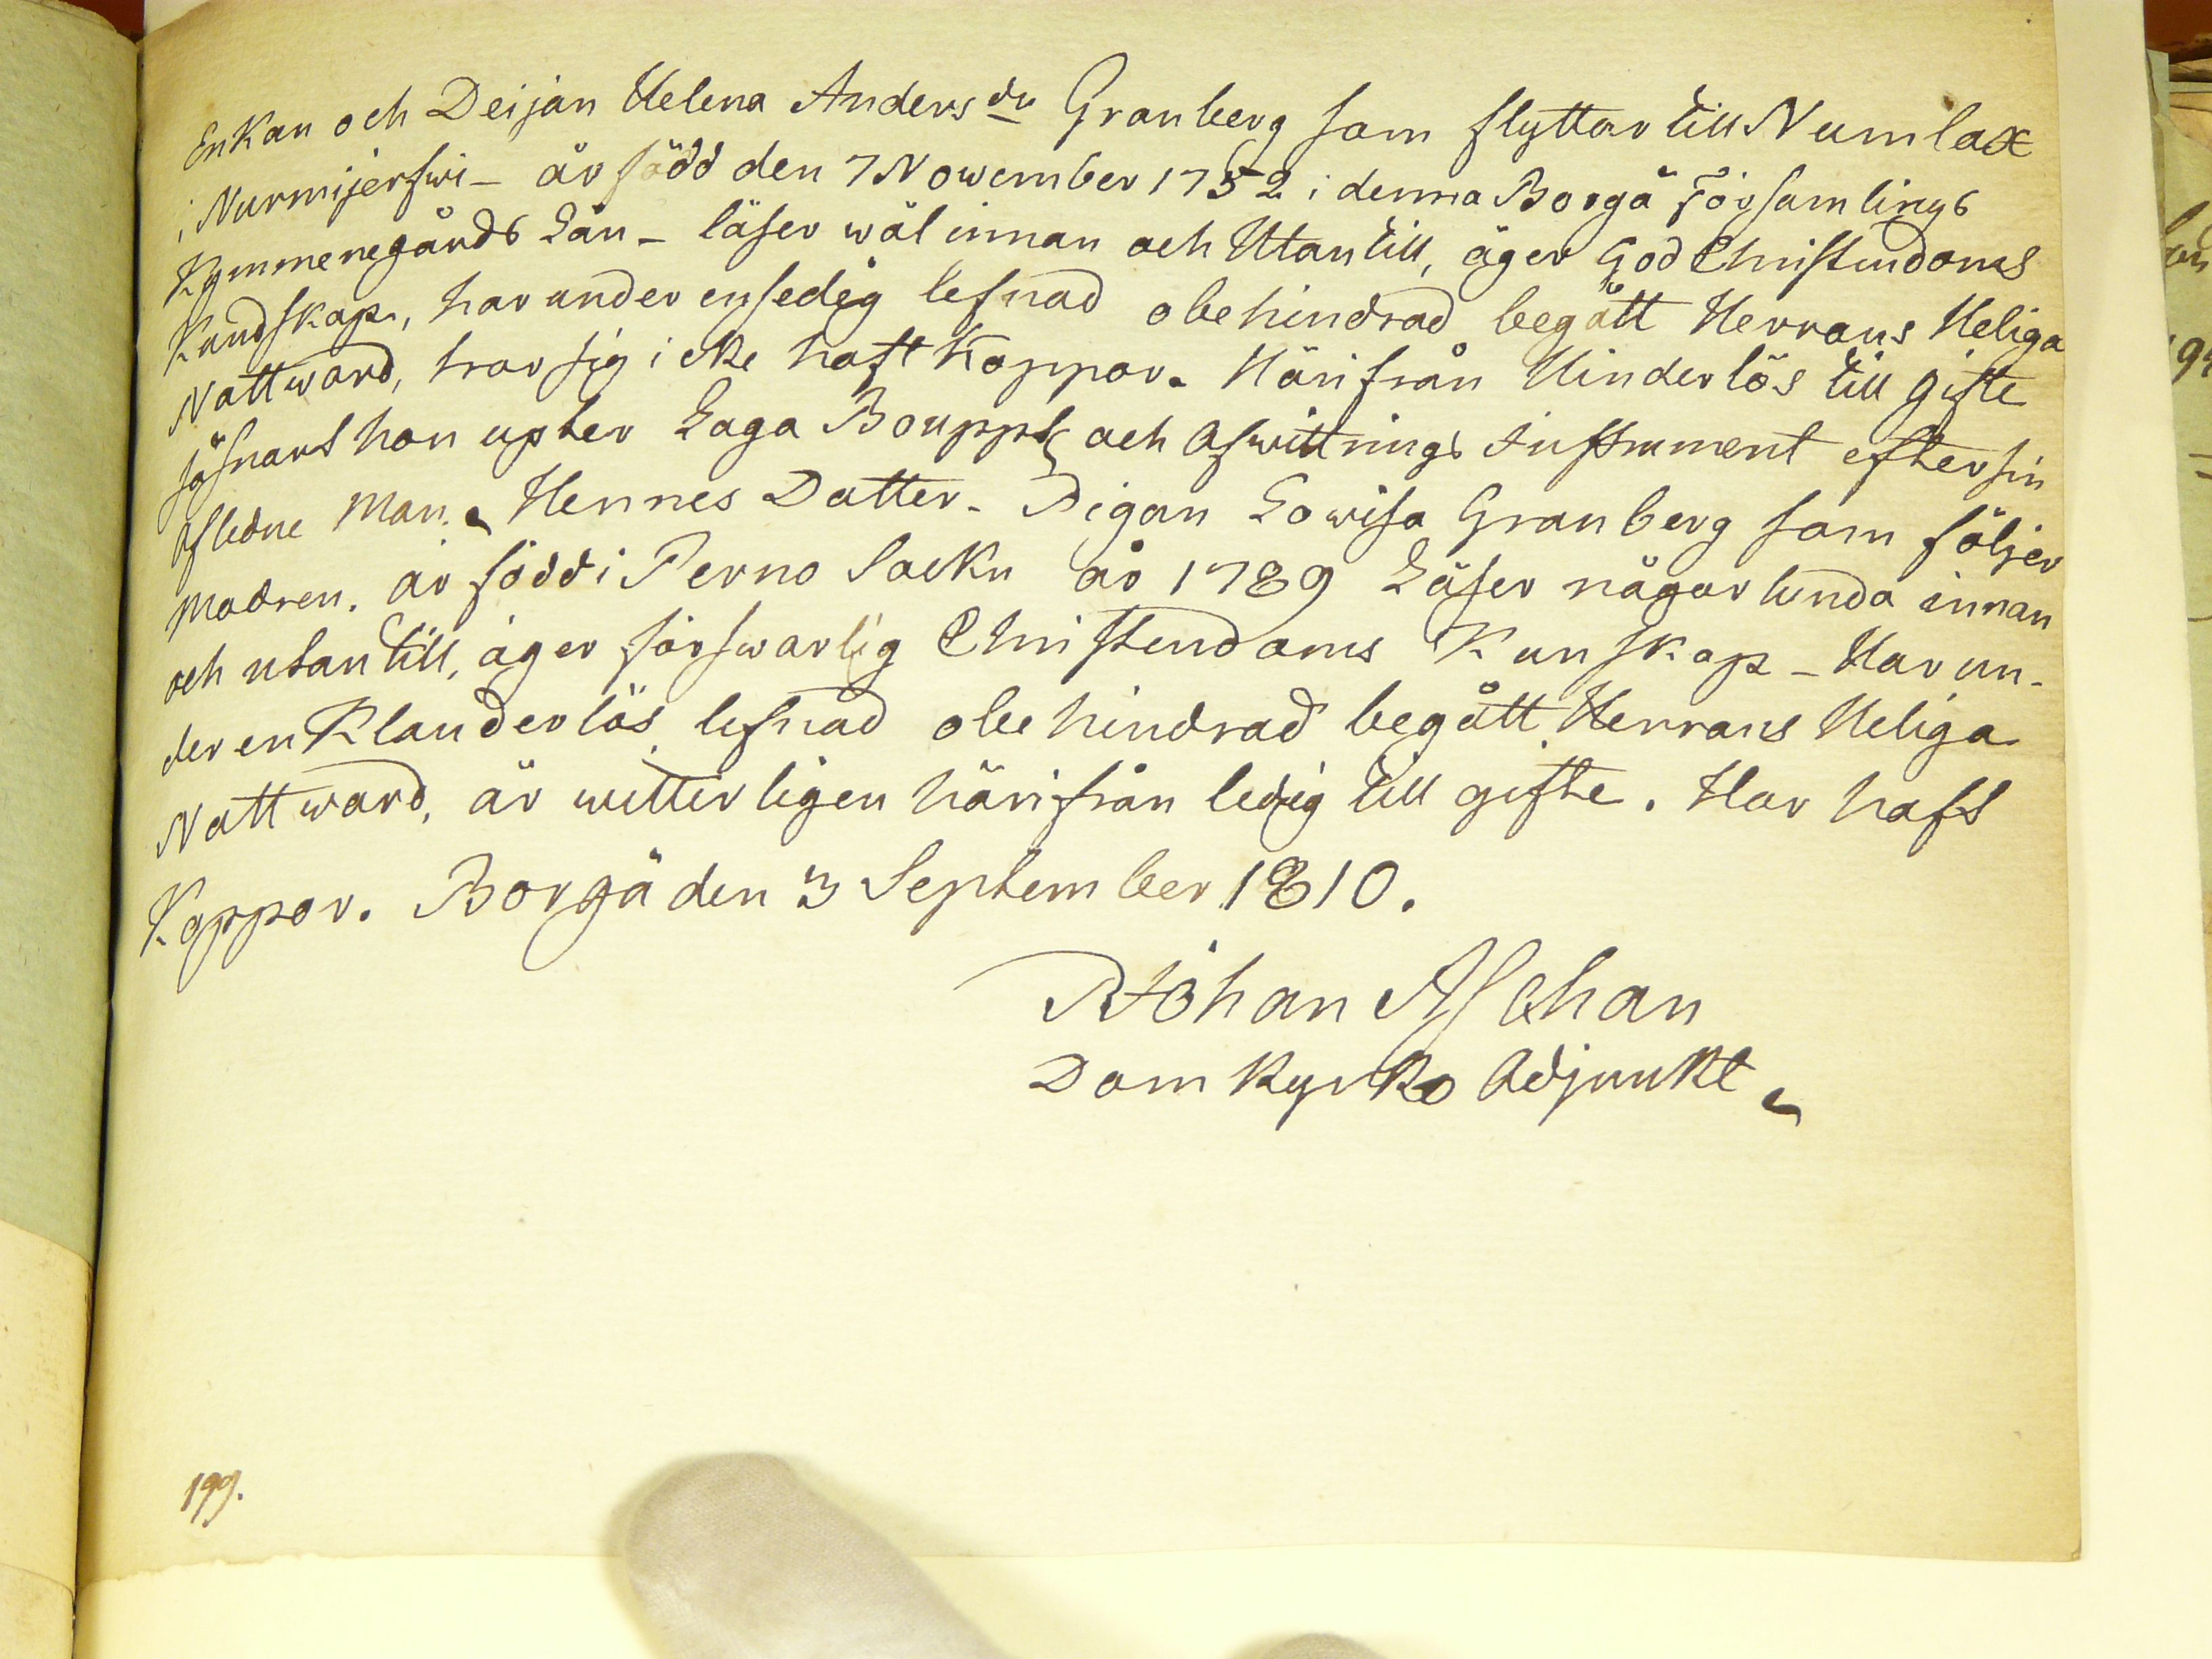 Enkan och Deijan Helena Andersdr Granberg som flyttar till Numlax
i Nurmijerfwi - är född den 7 Nowember 1752 i denna Borgå Församlings
Kymmenegårds Län - läser wäl innan och Utantill, äger God Christendoms
Kundskap, har under ensedig lefnad obehindrad begått Herrans Heliga
Nattward, har sig icke haft Koppor. Härifrån Hinderlös till gifte
såsnart hon upter Laga Boupptt och Afwittrings Instrument efter sin
Afledne Man. Hennes Datter. Pigan Lowisa Granberg som följer
Modren. är född i Perno Sockn år 1789 Läser någorlunda innan
och utantill, äger förswarlig Christendoms Kunskap - Har un-
der en Klanderlös lefnad obehindrad begått Herrans Heliga
Nattward, är witterligen härifrån ledig till gifte. Har haft
Koppor. Borgå den 3 September 1810.
Johan Aschan
Domkyrko Adjunkt
199.